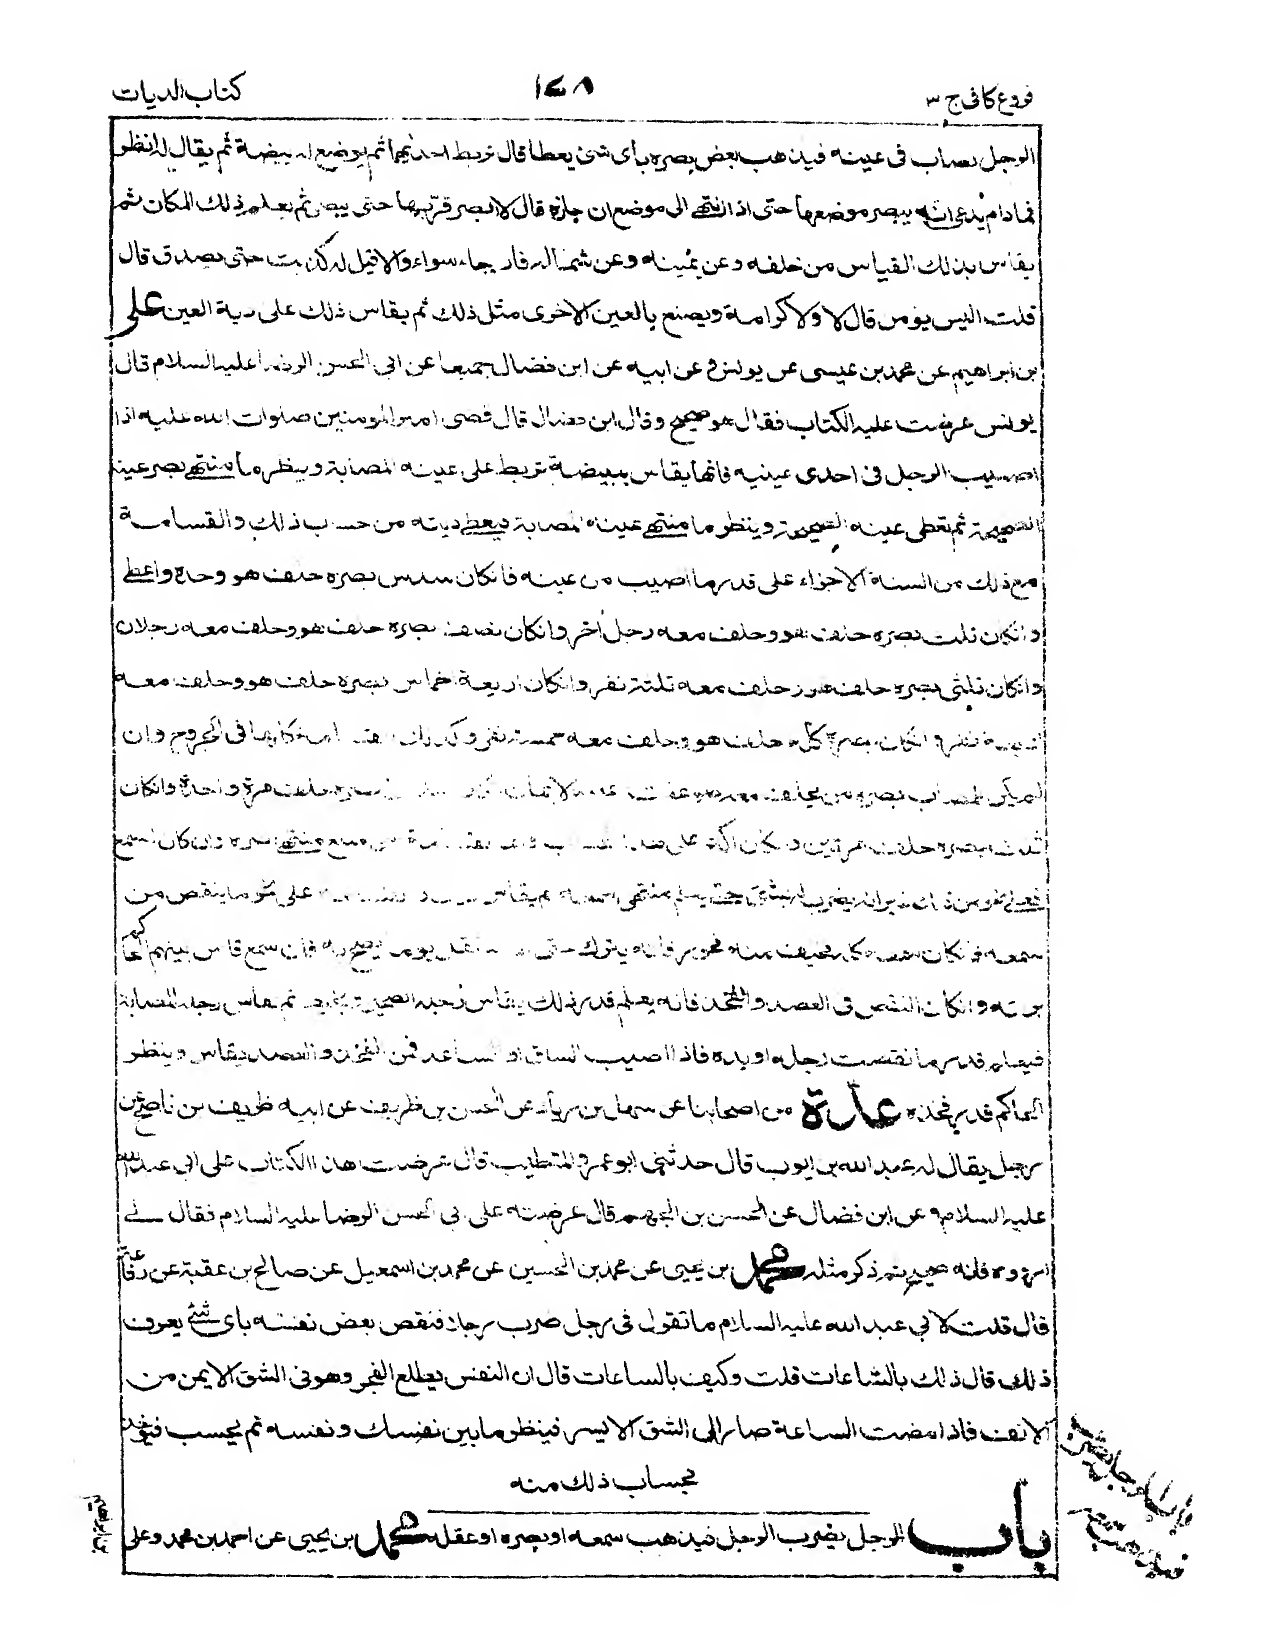 فروع كافى ج ٣
١٤٨
كتاب الديات
الرجل يصاب فى عينه فيذهب بعض بصره باى شئ يعطا قال تربط احديهما ثم يوضع له بيضة ثم يقال له انظر
فمادام يدعى انه يبصر موضعها حتى اذا انتهى الى موضع ان جازه قال لا ابصر قربها حتى يبصر ثم يعلم ذلك المكان ثم
يقاس بذلك القياس من خلفه وعن يمينه وعن شماله فان جاء سواء والا قيل له كذبت حتى يصدق قال
قلت اليس يؤمن قال لا ولا كرامة ويصنع بالعين الاخرى مثل ذلك ثم يقاس ذلك على دية العين على
بن ابراهيم عن محمد بن عيسى عن يونس و عن ابيه عن ابن فضال جميعا عن ابى الحسن الرضا عليه السلام قال
يونس عرضت عليه الكتاب فقال هو صحيح وقال ابن فضال قال قضى امير المؤمنين صلوات الله عليه اذا
اصيب الرجل فى احدى عينيه فانها يقاس ببيضة تربط على عينه المصابة وينظر ما منتهى بصر عينه
الصحيحة ثم تغطى عينه الصحيحة وينظر ما منتهى عينه المصابة فيعطى ديته من حساب ذلك والقسامة
مع ذلك من الستة الاجزاء على قدر ما اصيب من عينه فانكان سدس بصره حلف هو وحده واعطى
وانكان ثلث بصره حلف هو وحلف معه رجل آخر وانكان نصف بصره حلف هو وحلف معه رجلان
وانكان ثلثى بصره حلف هو وحلف معه ثلثة نفر وانكان اربعة اخماس بصره حلف هو وحلف معه
اربعة نفر وانكان بصره كله حلف هو وحلف معه خمسة نفر وكذلك القسامة كلها فى الجروح وان
لم يكن للمصاب بصره من يحلف معه ضوعفت عليه الايمان ان كان سدس بصره حلف مرة واحدة وانكان
ثلث بصره حلف مرتين وانكان اكثر على هذا الحساب وانما القسامة على مبلغ منتهى بصره وان كان السمع
فعلى نحو من ذلك غير انه يضرب له بشئ حتى يعلم منتهى سمعه ثم يقاس ذلك على نحو ما ينقص من
سمعه فانكان سمعه كله فخيف منه فجور فانه يترك حتى نقل يوما يصيح به فان سمع قاس بينهم الحاكم
برئيه وانكان النقص فى العضد والفخذ فانه يعلم قدر ذلك يقاس رجله الصحيحة بخيط ثم يقاس رجله المصابة
فيعلم قدر ما نقصت رجله او يده فاذا اصيب الساق او الساعد فمن الفخذ والعضد يقاس وينظر
الحاكم قدر فخذه عدة من اصحابنا عن سهل بن زياد عن الحسن بن ظريف عن ابيه ظريف بن ناصح عن
رجل يقال له عبد الله بن ايوب قال حدثنى ابو عمرو المتطبب قال عرضت هذا الكتاب على ابى عبد الله
عليه السلام و عن ابن فضال عن الحسن بن الجهم قال عرضته على ابى الحسن الرضا عليه السلام فقال لى
ارووه فانه صحيح ثم ذكر مثله محمد بن يحيى عن محمد بن الحسين عن محمد بن اسمعيل عن صالح بن عقبة عن رفاعة
قال قلت لابى عبد الله عليه السلام ما تقول فى رجل ضرب رجلا فنقص بعض نفسه باى شئ يعرف
ذلك قال ذلك بالساعات قلت وكيف بالساعات قال ان النفس يطلع الفجر وهو فى الشق الايمن من
الانف فاذا مضت الساعة صار الى الشق الايسر فينظر ما بين نفسك ونفسه ثم يحسب فيؤخذ
بحساب ذلك منه
باب الرجل يضرب الرجل فيذهب سمعه او بصره او عقله محمد بن يحيى عن احمد بن محمد وعلى
بن ابراهيم
باب الرجل يضرب